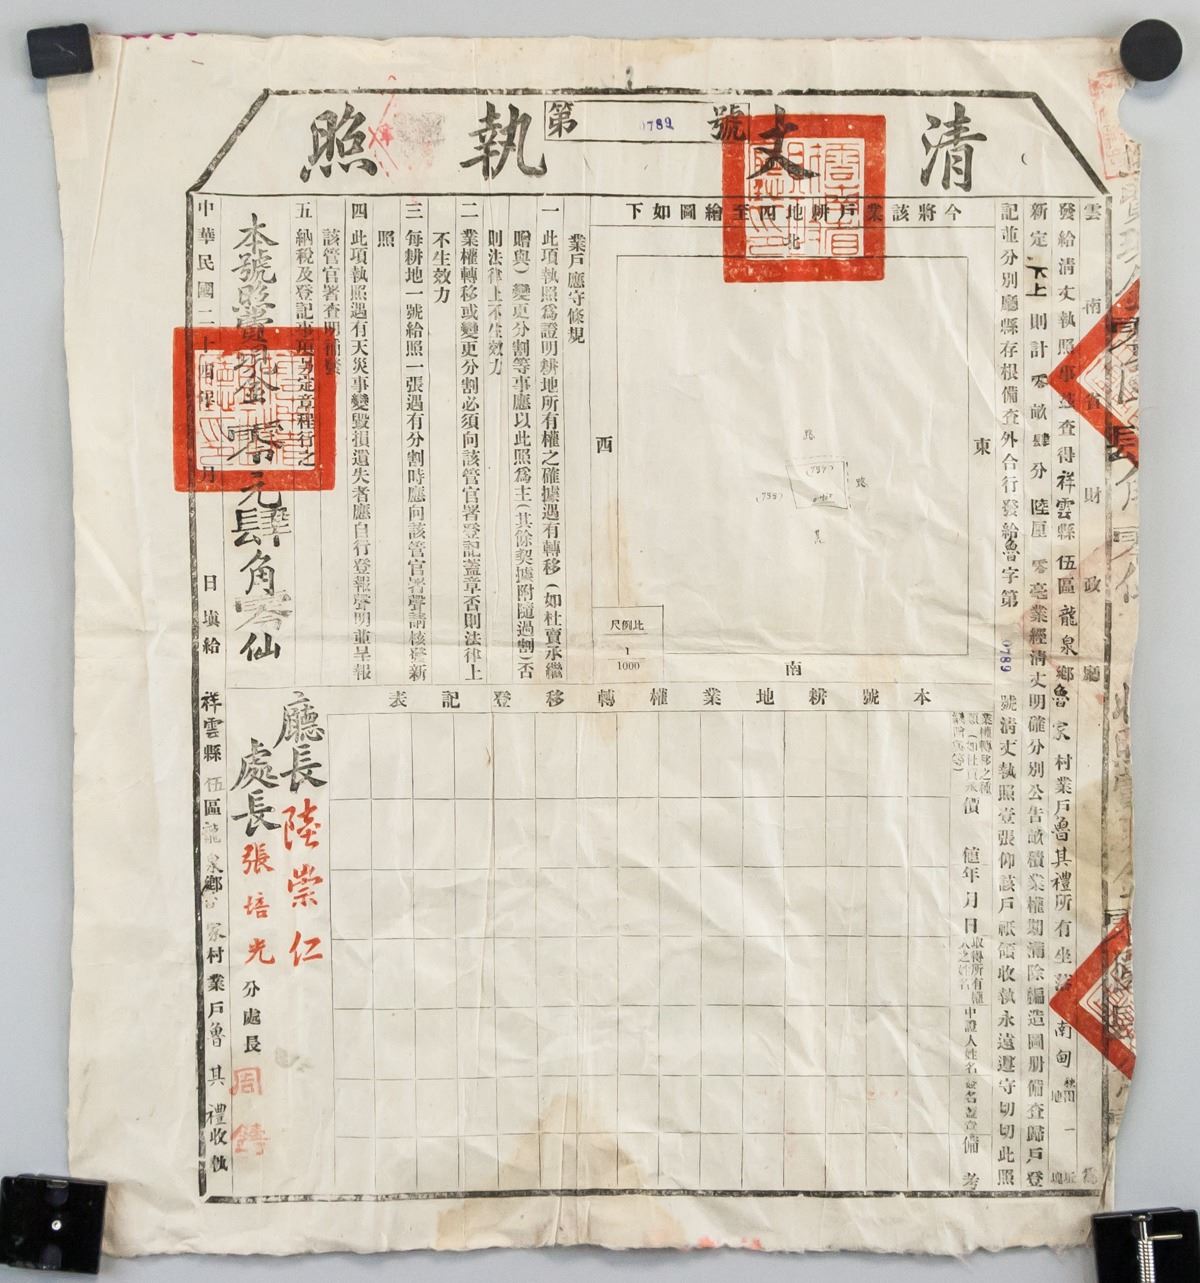 清丈執照
第0789號
雲南省財政廳為
發給清丈執照事茲查得祥雲縣伍區龍泉鄉魯家村業戶魯其禮所有坐落南甸
地一
坵塊
新定下上則計零畝肆分陸厘零毫業經清丈明確分別公告畝積業權期滿除編造圖册備查歸戶登
記並分別廳縣存根備查外合行發給魯字第0789號清丈執照壹張仰該戶祇領收執永遠遵守切切此照
今將該業戶耕地四至繪圖如下
北
東
西
南
路
路
(788)
比例尺
1
1000
業戶應守條規
一 此項執照為證明耕地所有權之確據遇有轉移(如杜賣承繼
贈與)變更分割等事應以此照為主(其餘契據附隨過割)否
則法律上不生效力
二 業權轉移或變更分割必須向該管官署登記蓋章否則法律上
不生效力
三 每耕地一號給照一張遇有分割時應向該管官署聲請核發新
照
四 此項執照遇有天災事變毀損遺失者應自行登報聲明並呈報
該管官署查明補發
五 納稅及登記事項另定章程行之
本號照費現金零元肆角零仙
中華民國二十四年 月 日填給 祥雲縣伍區龍泉鄉 家村業戶魯其禮收執
本號耕地業權轉移登記表
業權轉移之種
類(如杜賣承
繼贈與等)
價值
年月日
取得所有權
人之姓名
中證人姓名
簽名蓋章
備考
廳長陸崇仁
處長張培光
分處長周鑄